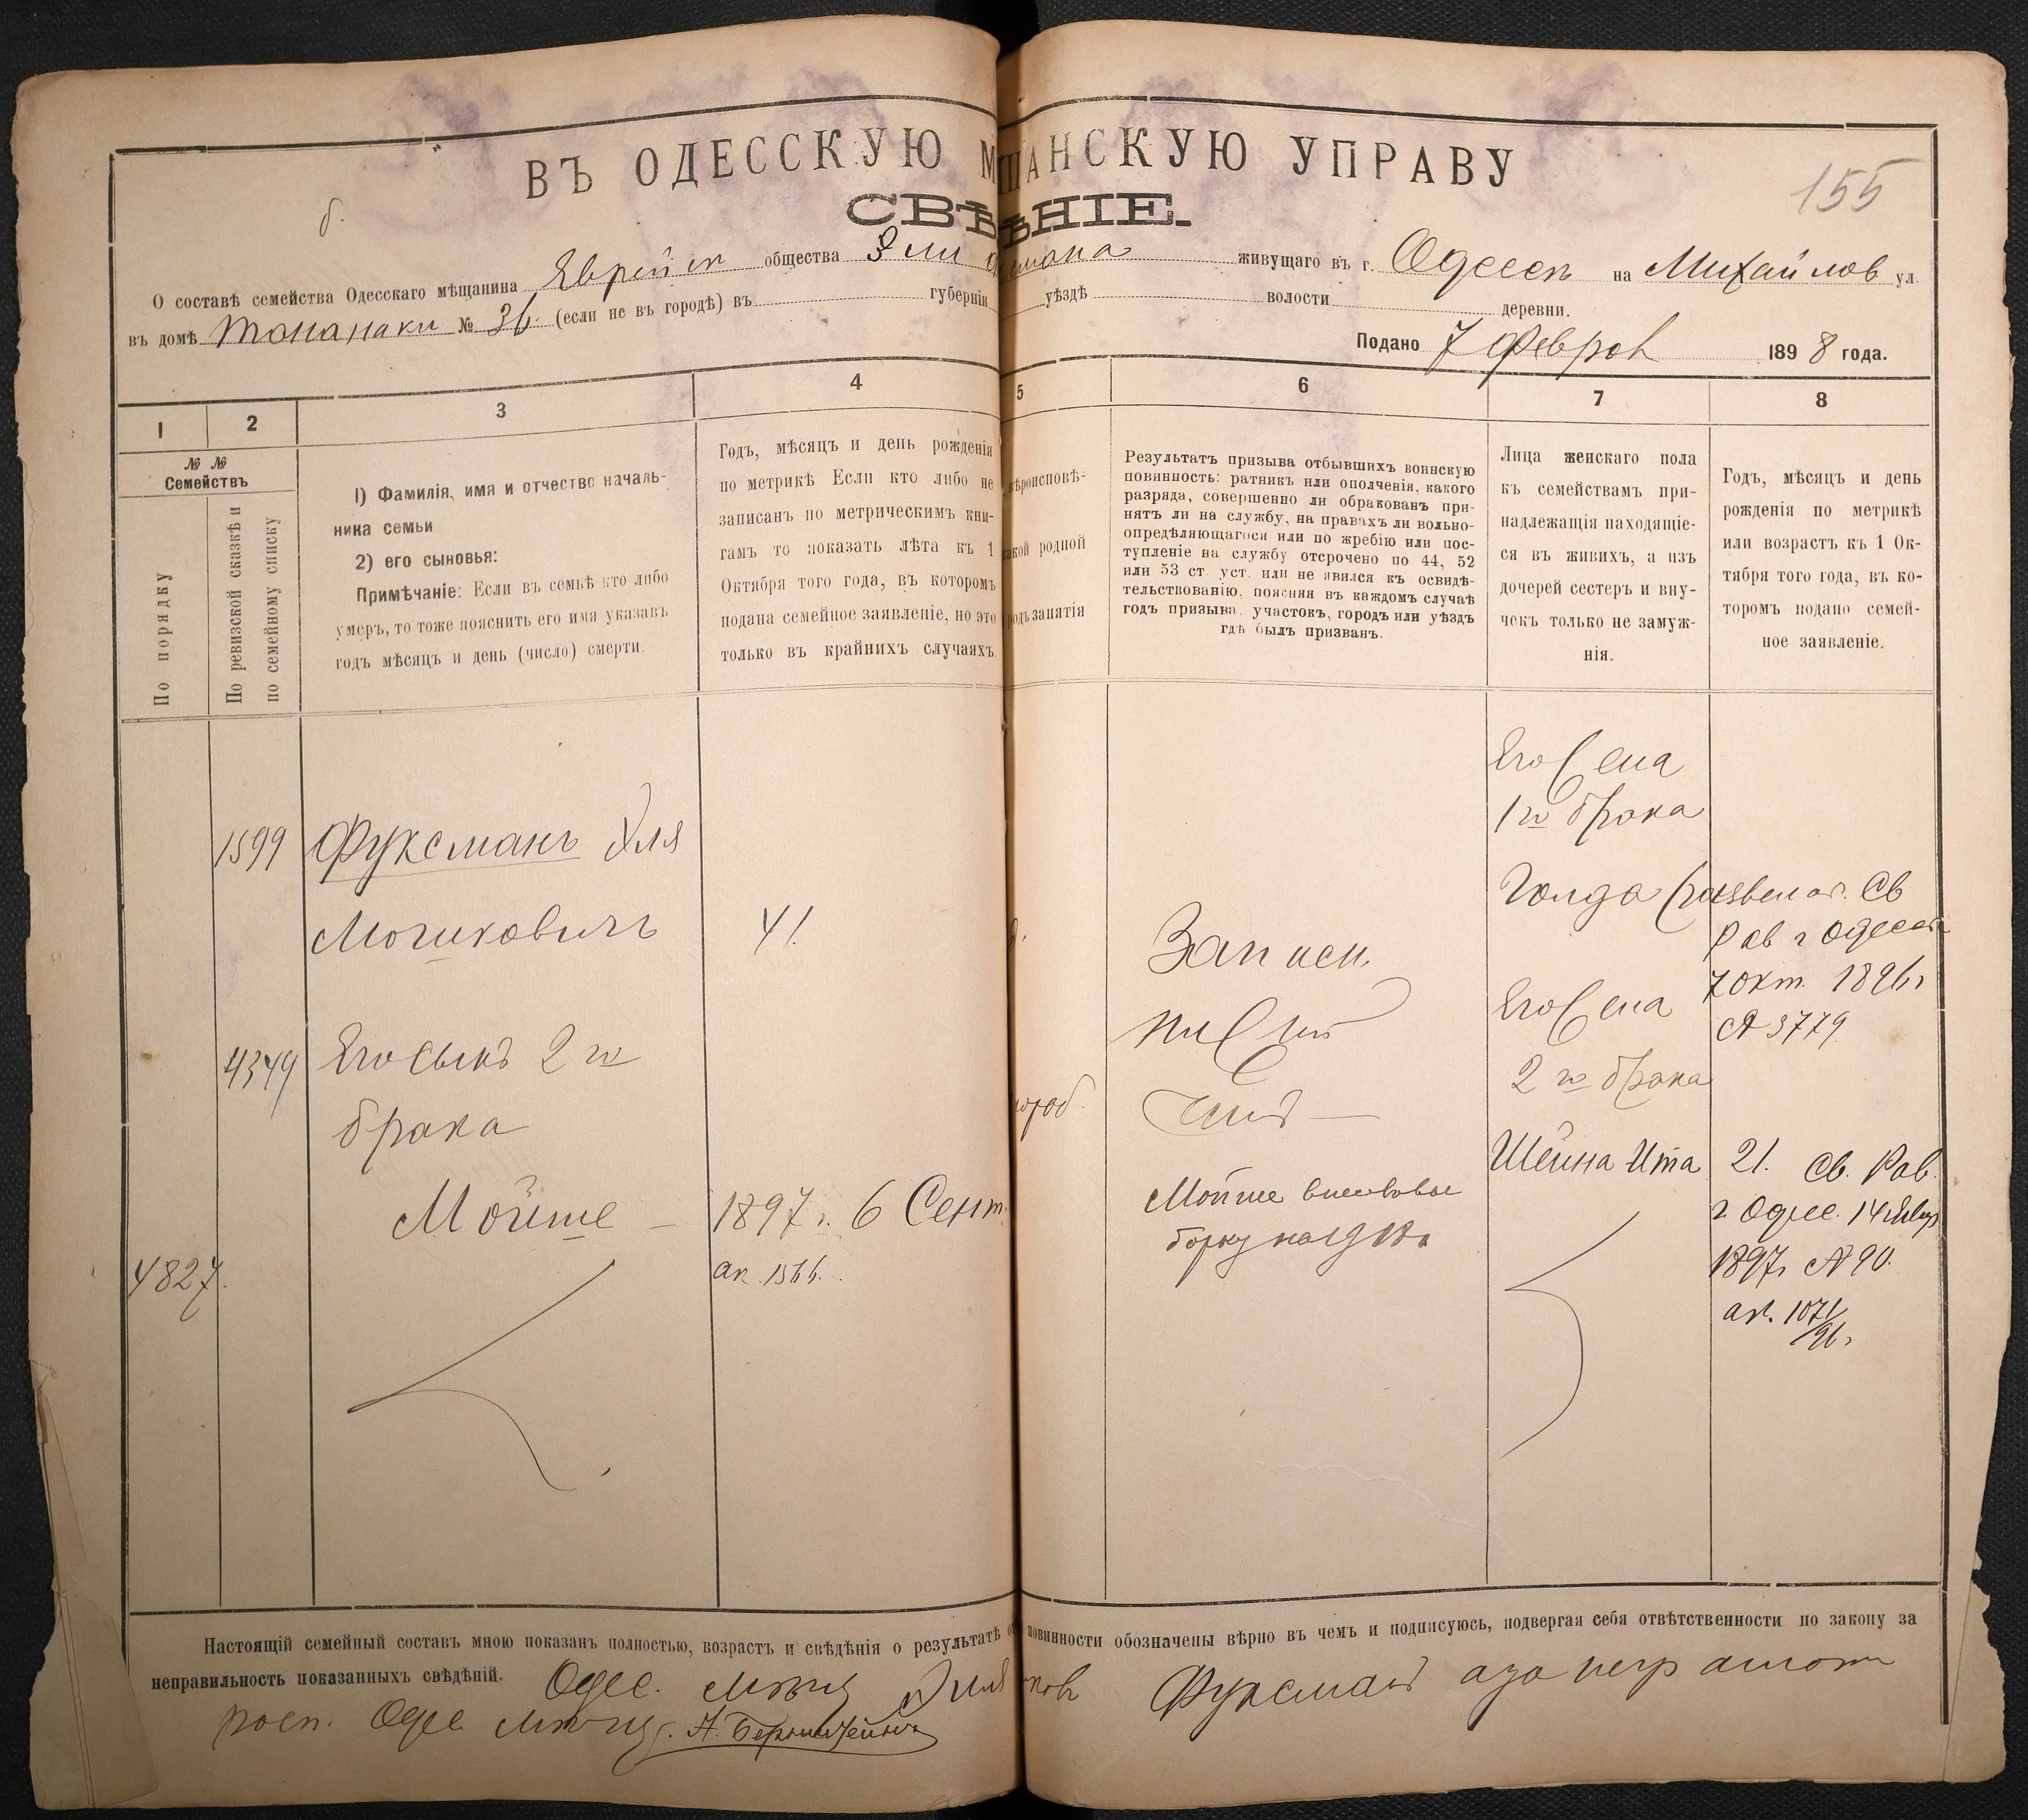 ВЪ ОДЕССКУЮ М ЩАНСКУЮ УПРАВУ
155
СВѢ ѢНІЕ.
б.
О составѣ семейства Одесскаго мѣщанина Еврейск общества Эли смана живущаго въ г. Одессѣ на Михайлов ул.
въ домѣ Тонанаки № 36. (если не въ городѣ) въ губерніи уѣздѣ волости деревни.
Подано 7 Феврал 1898 года.
1 2 3 4 5 6 7 8
№ №
Семействъ
По порядку
По ревизской сказкѣ и
по семейному списку
1) Фамилія, имя и отчество началь-
ника семьи
2) его сыновья:
Примѣчаніе: Если въ семьѣ кто либо
умеръ, то тоже пояснить его имя указавъ
годъ мѣсяцъ и день (число) смерти.
Годъ, мѣсяцъ и день рожденія
по метрикѣ Если кто либо не
записанъ по метрическимъ кни-
гамъ то показать лѣта къ 1
Октября того года, въ которомъ
подана семейное заявленіе, но это
только въ крайнихъ случаяхъ
вѣроисповѣ-
акой родной
одъ занятія
Результатъ призыва отбывшихъ воинскую
повинность: ратникъ или ополченія, какого
разряда, совершенно ли обракованъ при-
нятъ ли на службу, на правахъ ли вольно-
опредѣляющагося или по жребію или пос-
тупленіе на службу отсрочено по 44, 52
или 53 ст. уст. или не явился къ освидѣ-
тельствованію, поясняя въ каждомъ случаѣ
годъ призыва, участокъ, городъ или уѣздъ
гдѣ былъ призванъ.
Лица женскаго пола
къ семействамъ при-
надлежащія находящіе-
ся въ живихъ, а изъ
дочерей сестеръ и вну-
чекъ только не замуж-
нія.
Годъ, мѣсяцъ и день
рожденія по метрикѣ
или возрастъ къ 1 Ок-
тября того года, въ ко-
торомъ подано семей-
ное заявленіе.
1599 Фуксманъ Эля
Мошковичъ 41.
4349 Его сынъ 2 го
брака
Мойше – 1897 г. 6 Сент.
4827. ак. 1566.
Запасн.
нижній
чинъ –
Мойше
на 1918 г.
Его жена
1 го брака
Голда (развелас. Св
Рав г Одессы
7 окт. 1896 г
№ 3779
Его жена
2 го брака
Шейна Ита 21. Св. Рав.
г. Одес. 14 Янвр
1897 г № 90.
ак. 1071/96 г.
Настоящій семейный составъ мною показанъ полностью, возрастъ и свѣдѣнія о результатѣ о повинности обозначены вѣрно въ чемъ и подписуюсь, подвергая себя отвѣтственности по закону за
неправильность показанныхъ свѣдѣній. Одес. мѣщ Эля Фуксманъ а за неграмотн
росп. Одес мѣщ. Н. Бернштейнъ